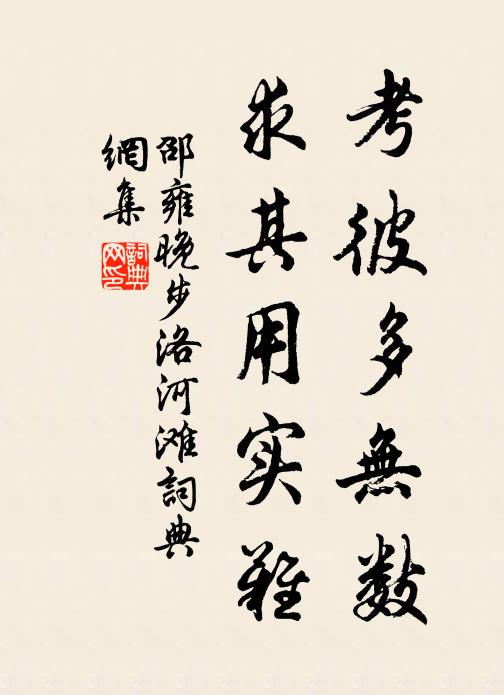 考彼多無数
求其用实難
邵雍晚步洛河滩詞典
網集
詞典
网印